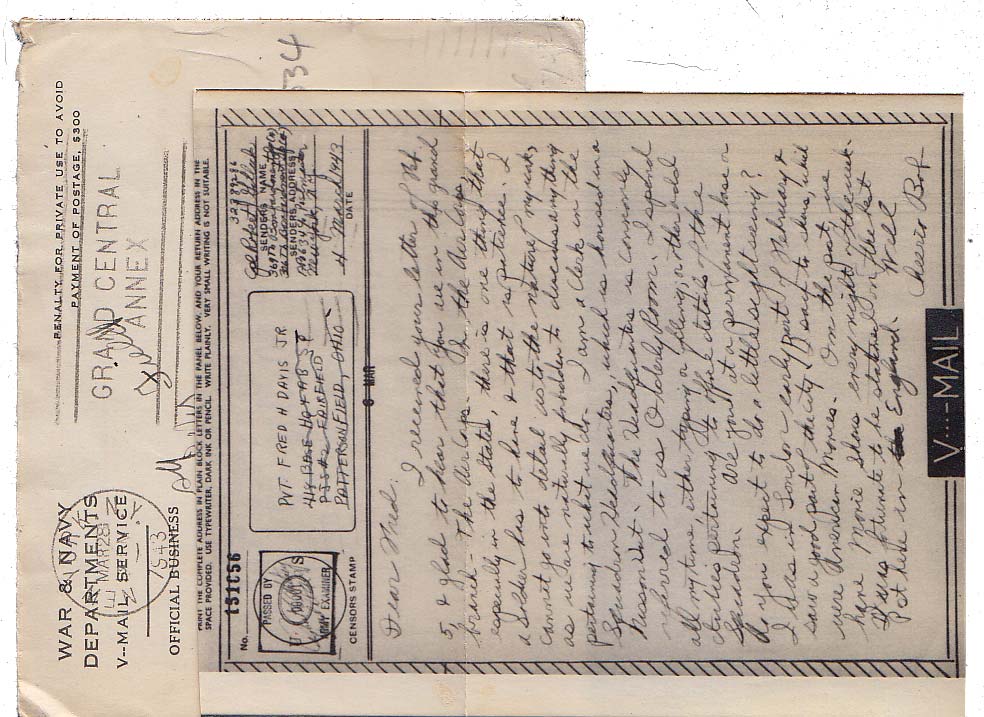 WAR & NAVY
DEPARTMENTS
V---MAIL SERVICE
OFFICIAL BUSINESS
PENALTY FOR PRIVATE USE TO AVOID
PAYMENT OF POSTAGE, $300
GRAND CENTRAL
ANNEX
1943
534
PRINT THE COMPLETE ADDRESS IN PLAIN BLOCK LETTERS IN THE PANEL BELOW, AND YOUR RETURN ADDRESS IN THE
SPACE PROVIDED. USE TYPEWRITER, DARK INK OR PENCIL. WRITE PLAINLY. VERY SMALL WRITING IS NOT SUITABLE.
No. 151C56
PASSED BY
ARMY EXAMINER
CENSORS STAMP
PVT FRED H DAVIS JR
PATTERSON FIELD, OHIO
6 MAR
SENDERS NAME
SENDERS ADDRESS
4 March 1943
DATE
Dear Fred,
I received your letter of Feb.
5, & glad to hear that you are in the grand
branch - The Air Corps. In the Air Corps
especially in the States, there is one thing that
a soldier has to have & that is patience. I
cannot go into detail as to the nature of my work,
as we are naturally forbidden to discuss anything
pertaining to what we do. I am a clerk in the
Squadron Headquarters, which is housed in a
Nisson Hut. The Headquarters is commonly
referred to as Orderly Room. I spend
all my time, either typing or filing, or the
duties pertaining to office details of the
Squadron. Are you at a permanent base or
do you expect to do a little sightseeing?
I was in London early part of February &
saw a good part of the city. I saw
were American Movies. On the post we
have Movie shows every night of the week.
fortunate to be stationed in the best
Pct here in England. Will
Cheerio Bob
V---MAIL